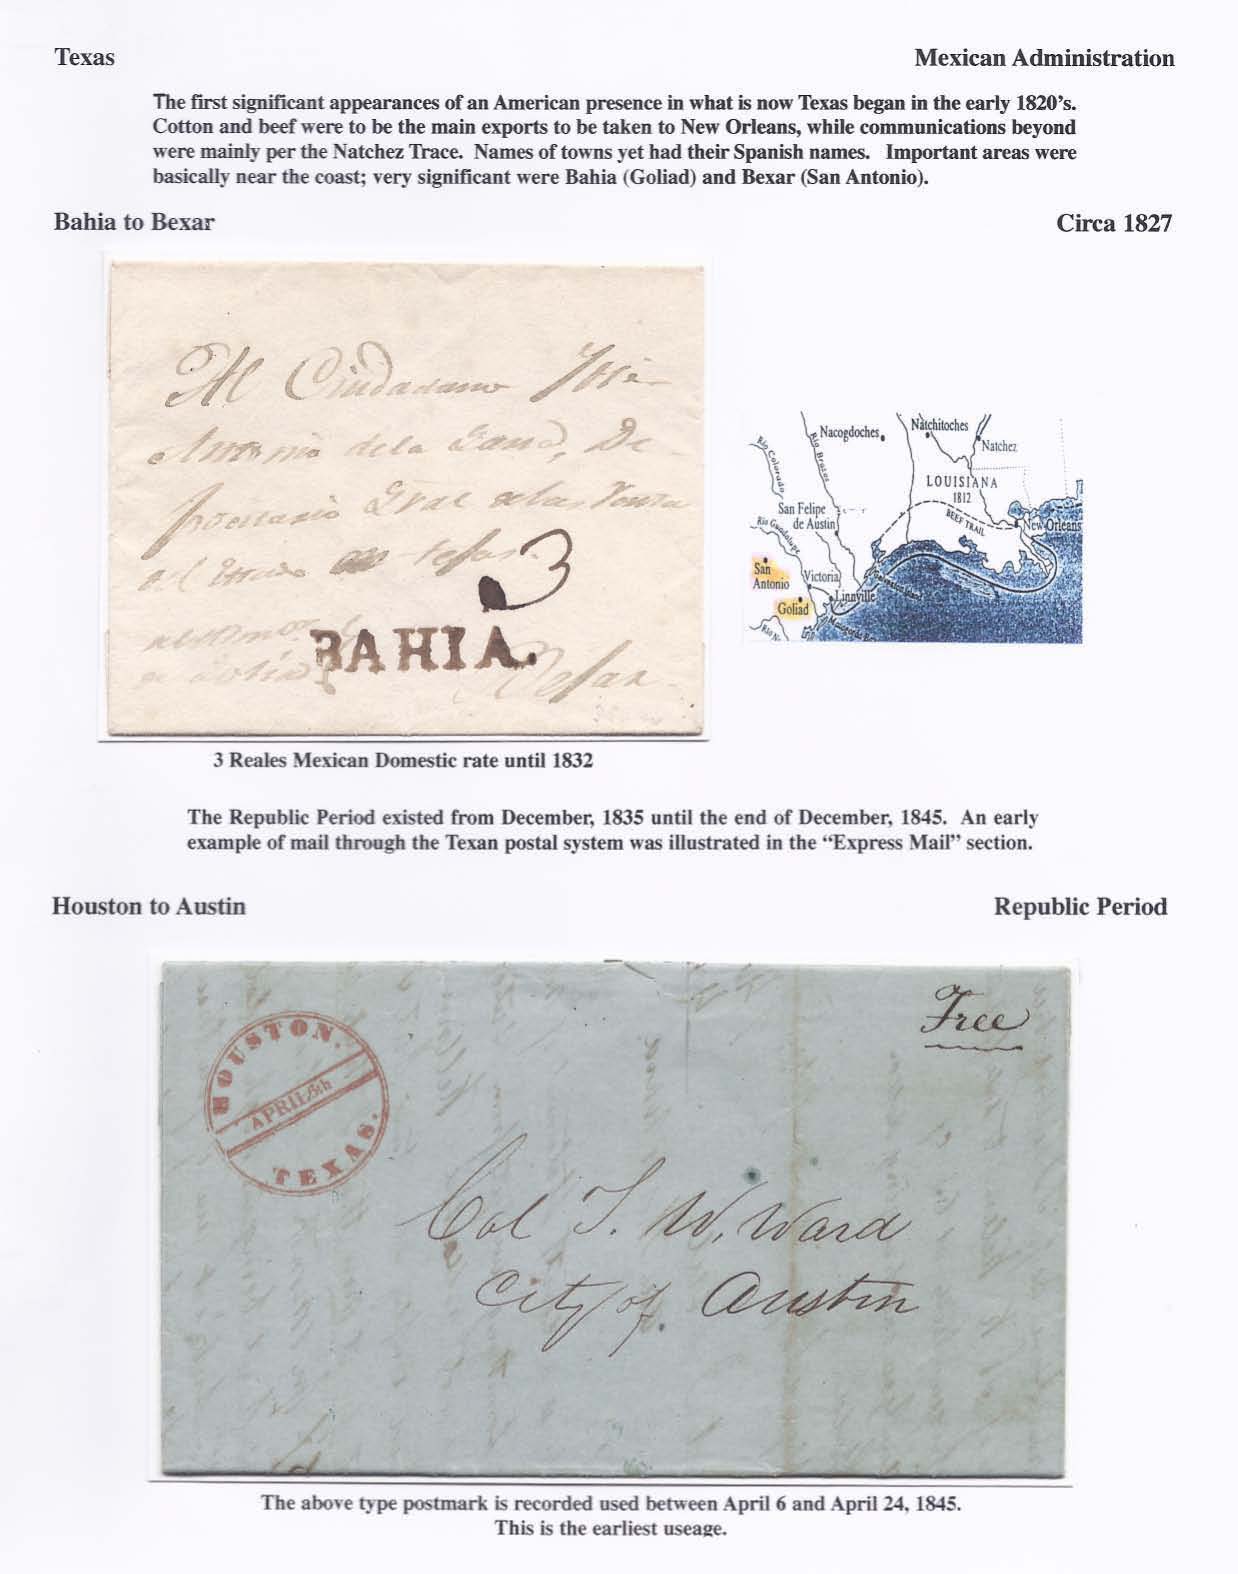 Texas
Mexican Administration
The first significant appearances of an American presence in what is now Texas began in the early 1820's.
Cotton and beef were to be the main exports to be taken to New Orleans, while communications beyond
were mainly per the Natchez Trace. Names of towns yet had their Spanish names. Important areas were
basically near the coast; very significant were Bahia (Goliad) and Bexar (San Antonio).
Bahia to Bexar
Circa 1827
Al Ciudadano José
Antonio de la
del Estado
3
BAHIA.
Bejar
Nacogdoches
Natchitoches
Natchez
Rio Colorado
Rio Brazos
LOUISIANA
1812
San Felipe
de Austin
BEEF TRAIL
New Orleans
Rio Guadalupe
San
Antonio
Victoria
Linnville
Goliad
3 Reales Mexican Domestic rate until 1832
The Republic Period existed from December, 1835 until the end of December, 1845. An early
example of mail through the Texan postal system was illustrated in the “Express Mail” section.
Houston to Austin
Republic Period
Free
HOUSTON.
APRIL
TEXAS.
Col T. W. Ward
City of Austin
The above type postmark is recorded used between April 6 and April 24, 1845.
This is the earliest useage.